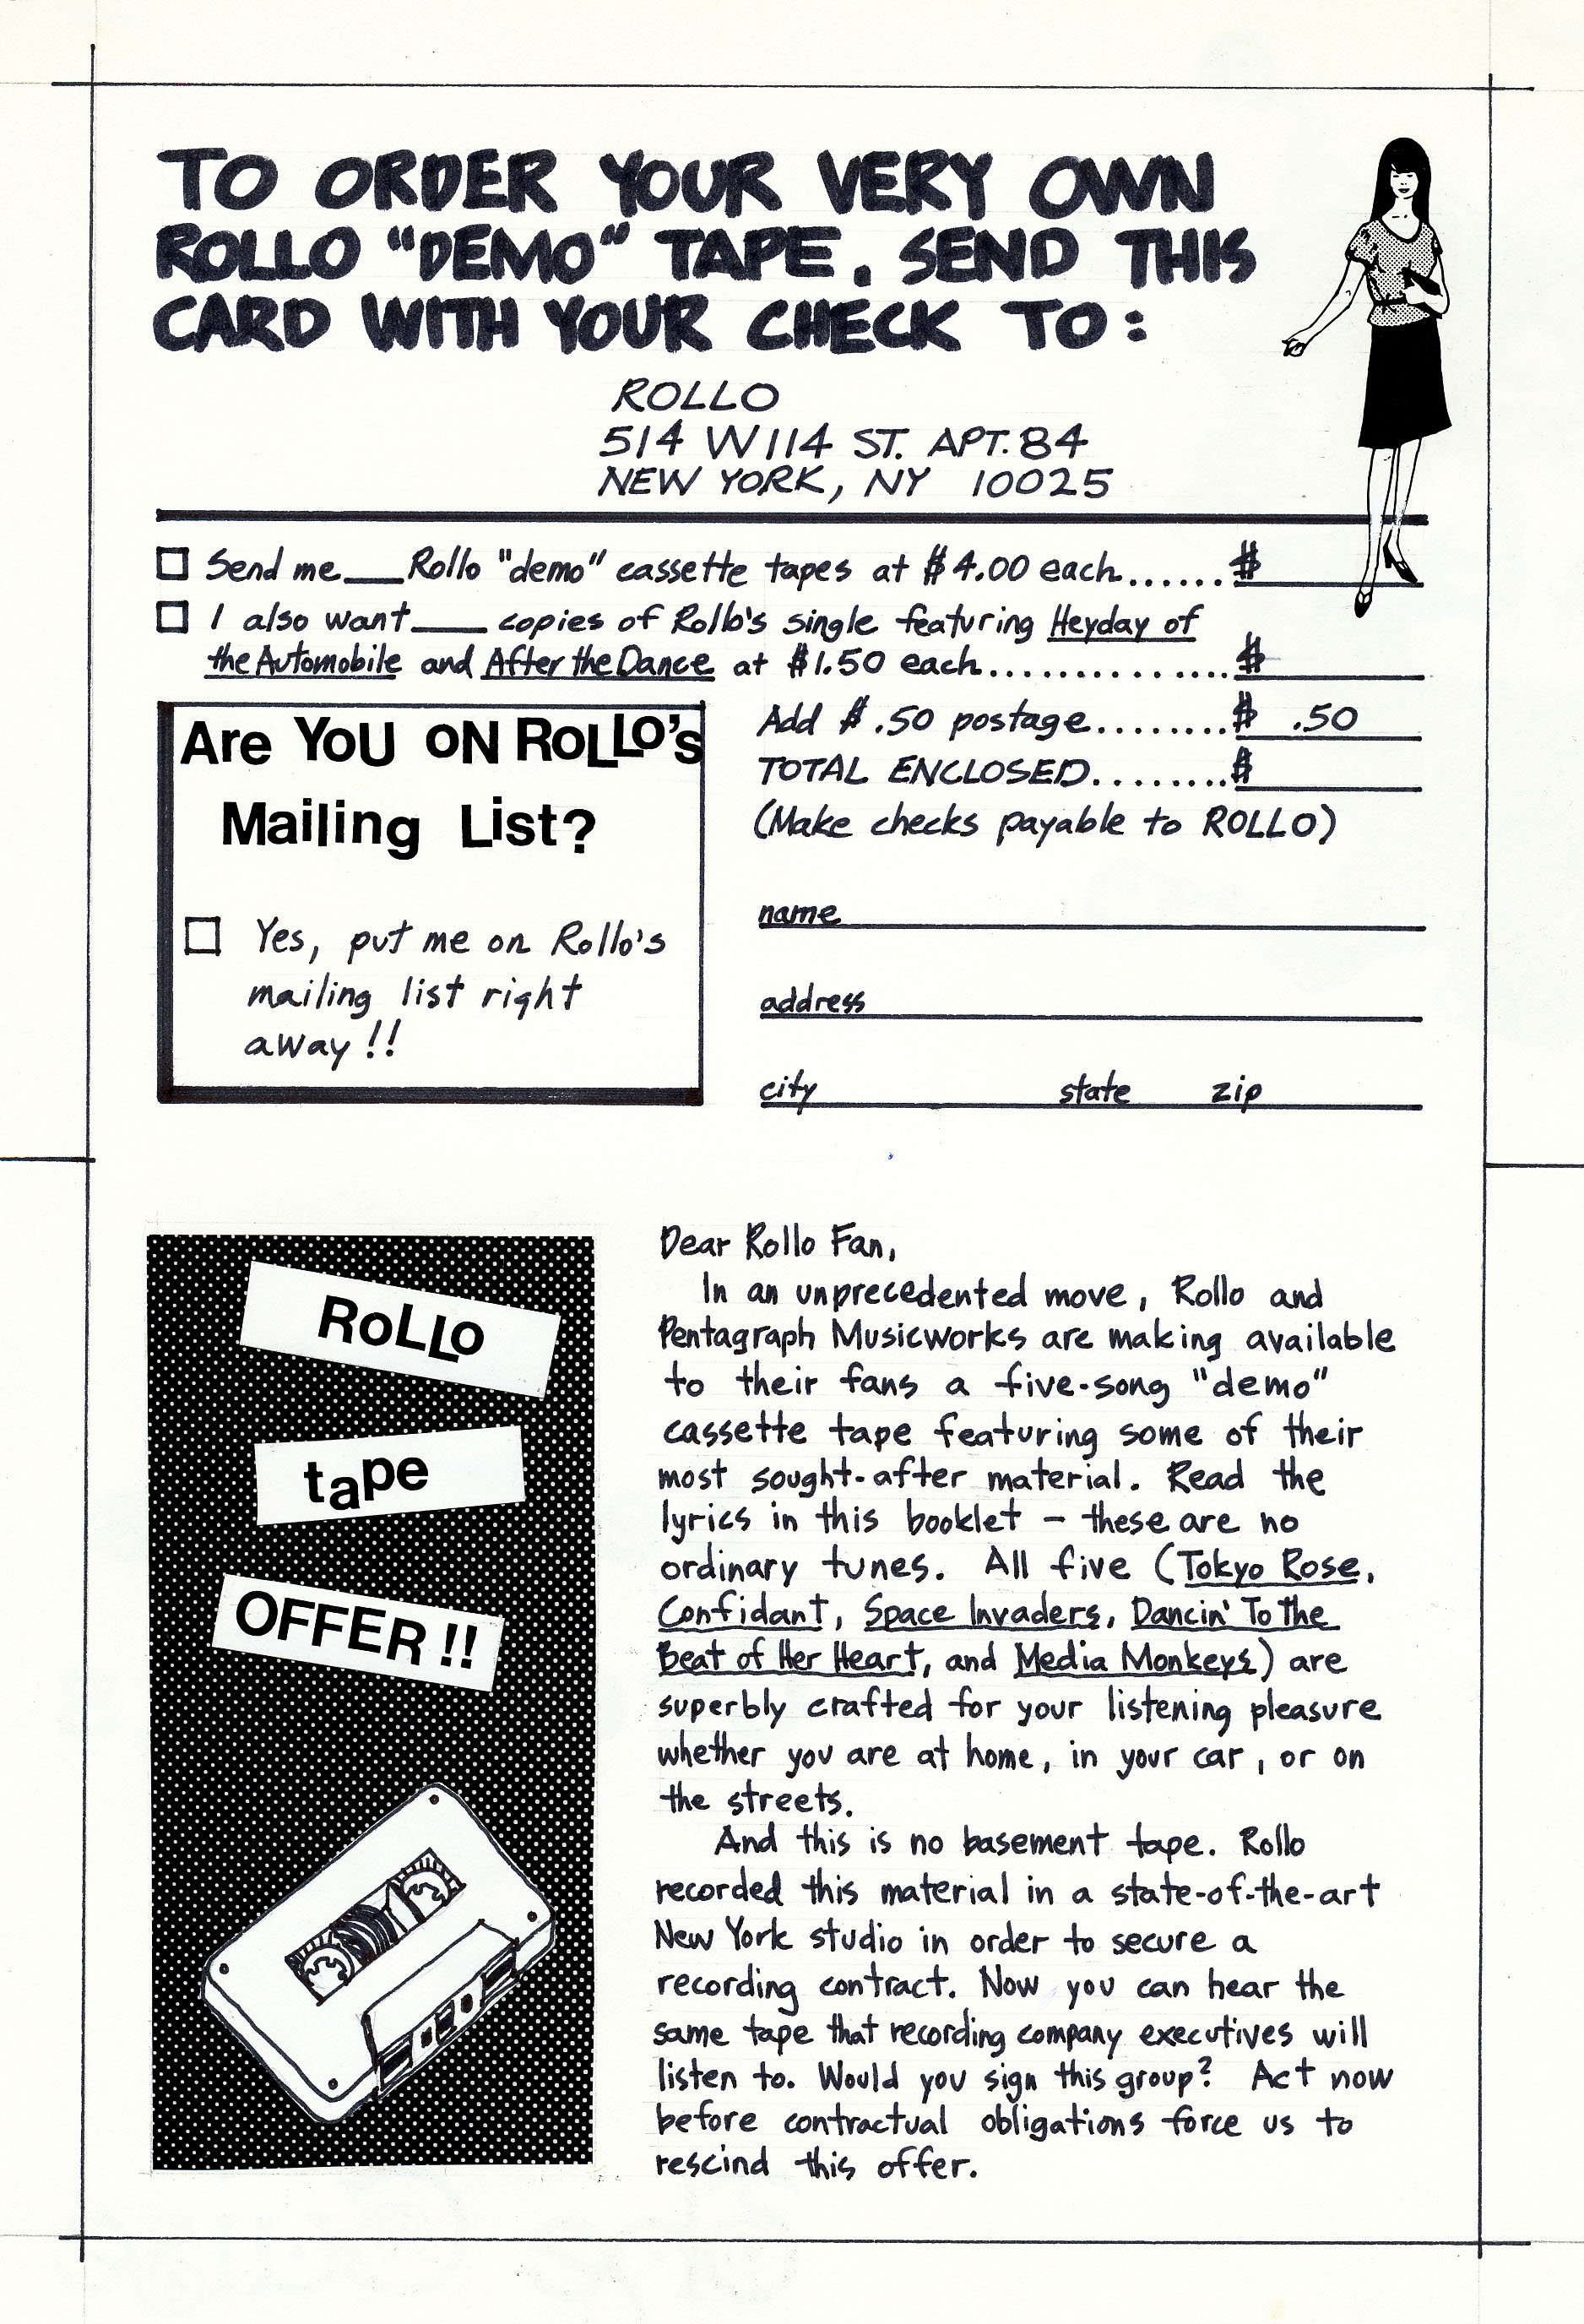 TO ORDER YOUR VERY OWN
ROLLO "DEMO" TAPE. SEND THIS
CARD WITH YOUR CHECK TO:
ROLLO
514 W114 ST. APT. 84
NEW YORK, NY 10025
Send me ___ Rollo "demo" cassette tapes at $4.00 each......$
I also want ___ copies of Rollo's single featuring Heyday of
the Automobile and After the Dance at $1.50 each..............$
Are YoU oN RoLLo's
Mailing List?
Yes, put me on Rollo's
mailing list right
away!!
Add $.50 postage........$ .50
TOTAL ENCLOSED........$
(Make checks payable to ROLLO)
name
address
city state zip
RoLLo
tape
OFFER!!
Dear Rollo Fan,
In an unprecedented move, Rollo and
Pentagraph Musicworks are making available
to their fans a five-song "demo"
cassette tape featuring some of their
most sought-after material. Read the
lyrics in this booklet - these are no
ordinary tunes. All five (Tokyo Rose,
Confidant, Space Invaders, Dancin' To the
Beat of Her Heart, and Media Monkeys) are
superbly crafted for your listening pleasure
whether you are at home, in your car, or on
the streets.
And this is no basement tape. Rollo
recorded this material in a state-of-the-art
New York studio in order to secure a
recording contract. Now you can hear the
same tape that recording company executives will
listen to. Would you sign this group? Act now
before contractual obligations force us to
rescind this offer.